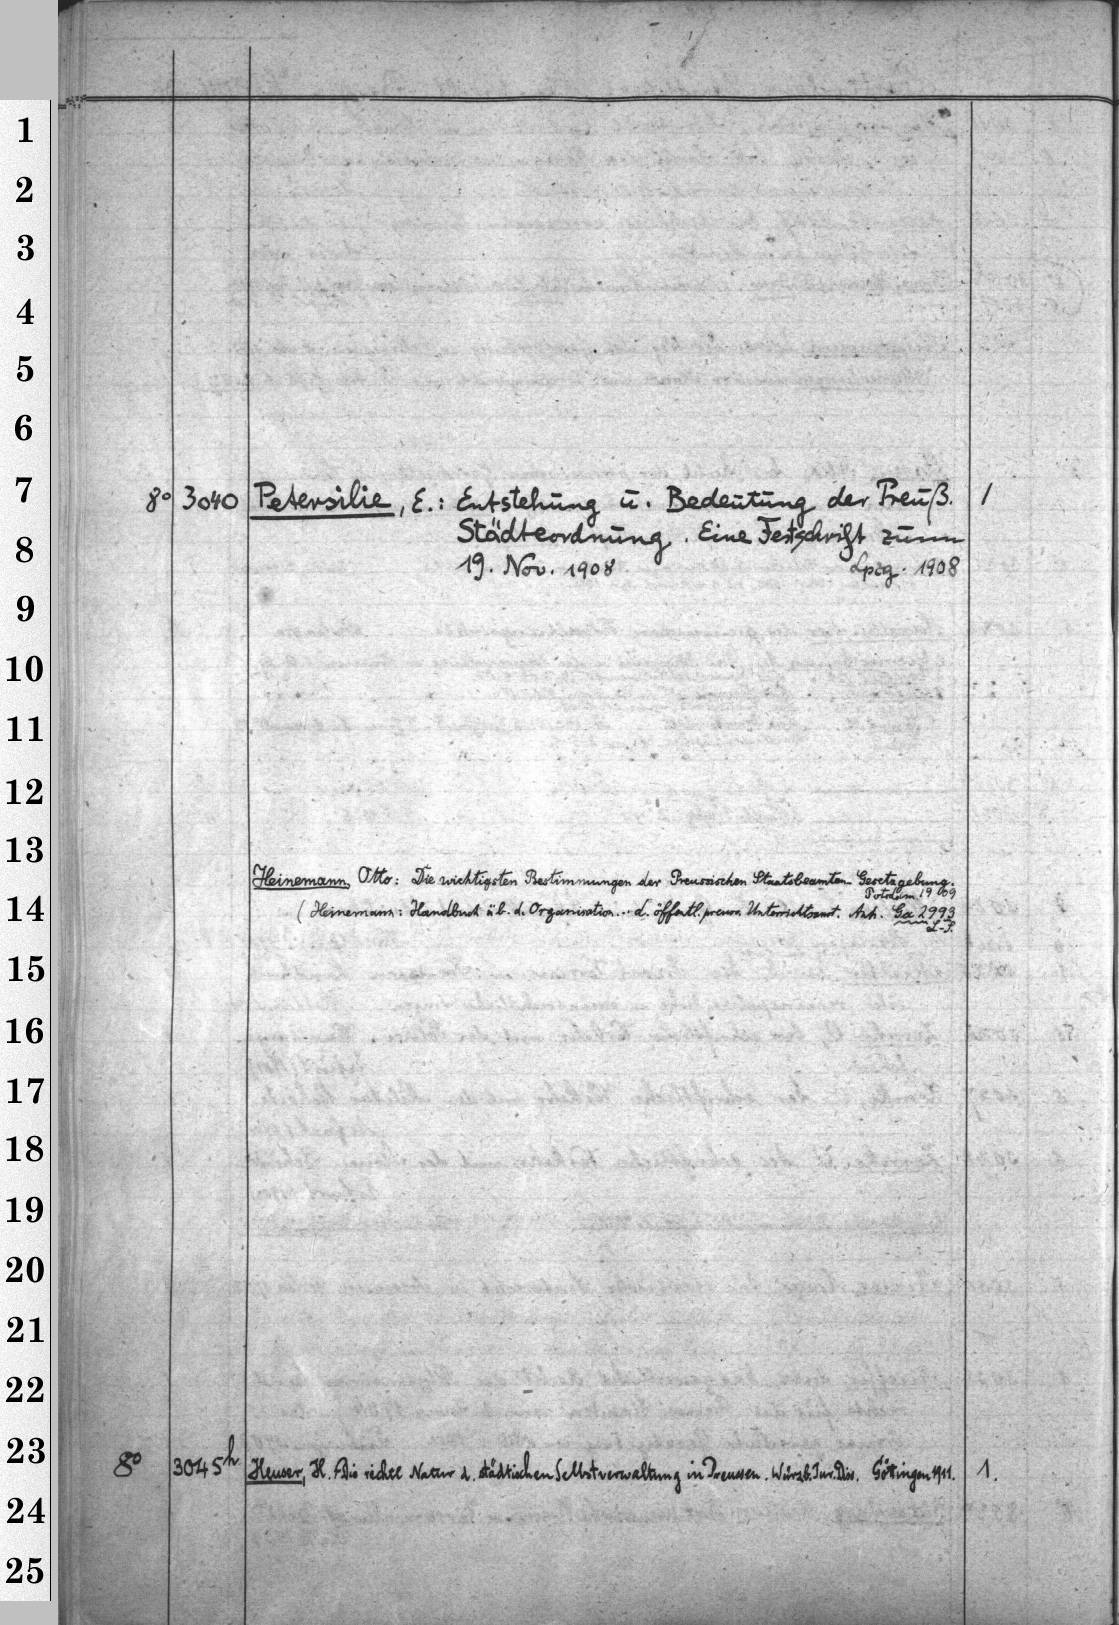 1
2
3
4
5
6
7
8
9
10
11
12
13
14
15
16
17
18
19
20
21
22
23
24
25
8° 3040 Petersilie, E.: Entstehung u. Bedeutung der Preuß. 1
Städteordnung. Eine Festschrift zum
19. Nov. 1908 Lpzg. 1908
Heinemann, Otto: Die wichtigsten Bestimmungen der Preussischen Staatsbeamten-Gesetzgebung.
Potsdam 1909
(Heinemann: Handbuch üb. d. Organisation... d. öffentl. preuss. Unterrichtsanst. Anh. Ga 2993
L-S.
8° 3045h Heuser, H. Die rechtl Natur d. städtischen Selbstverwaltung in Preussen. Würzb. Jur. Diss. Göttingen 1911. 1.